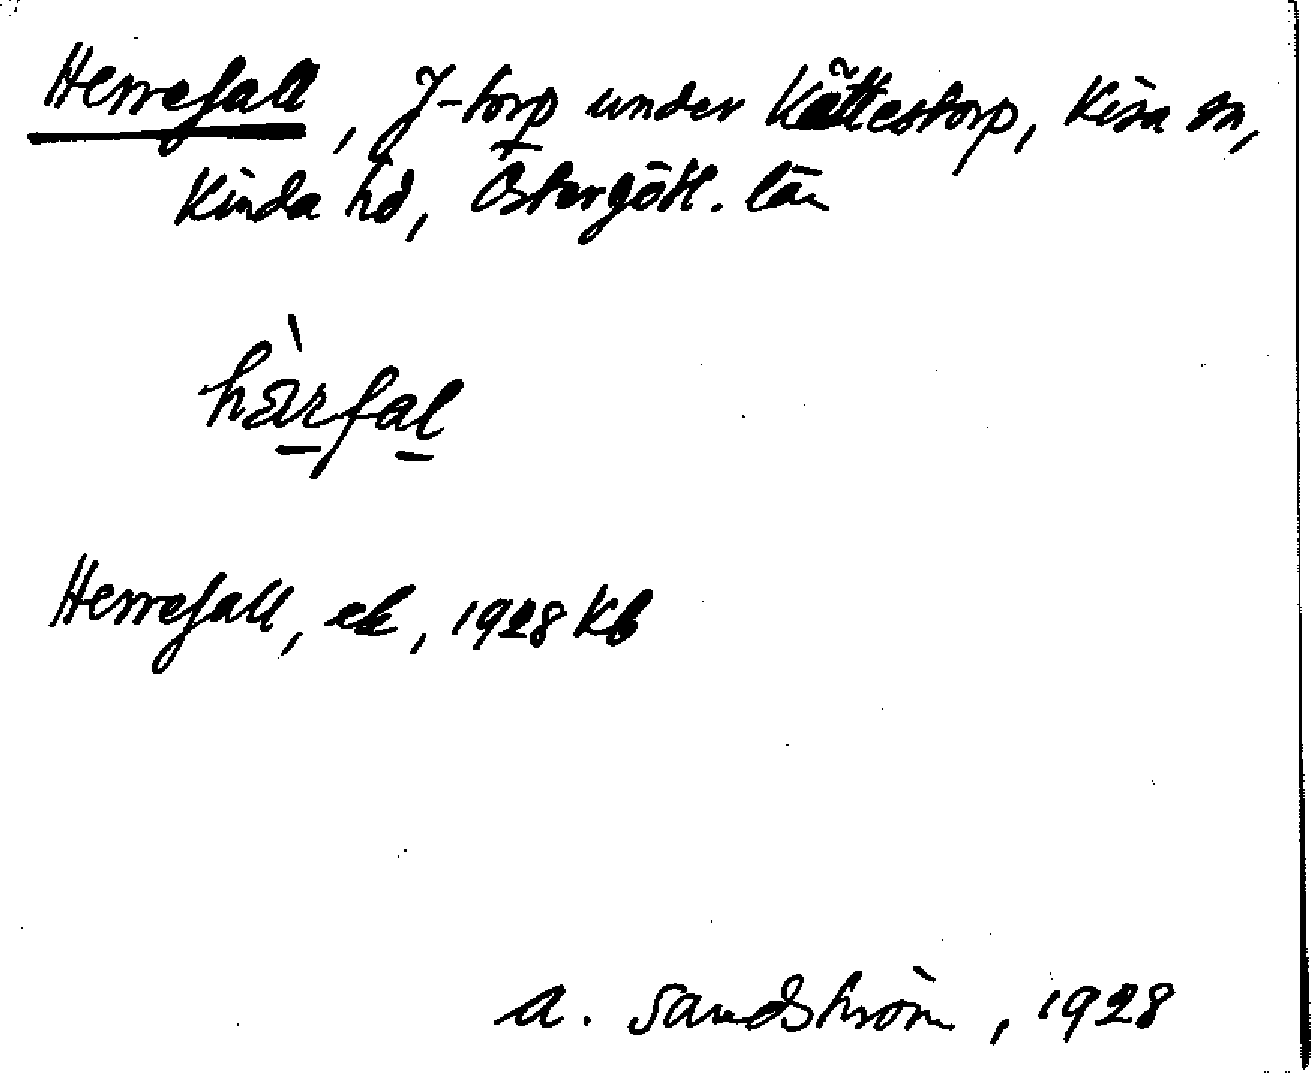 Herrefall, J-torp under Kättestorp, Kisa sn,
Kinda hd, Östergötl. län
hàrfal
Herrefall, ek, 1928 Kb
A. Sandström, 1928